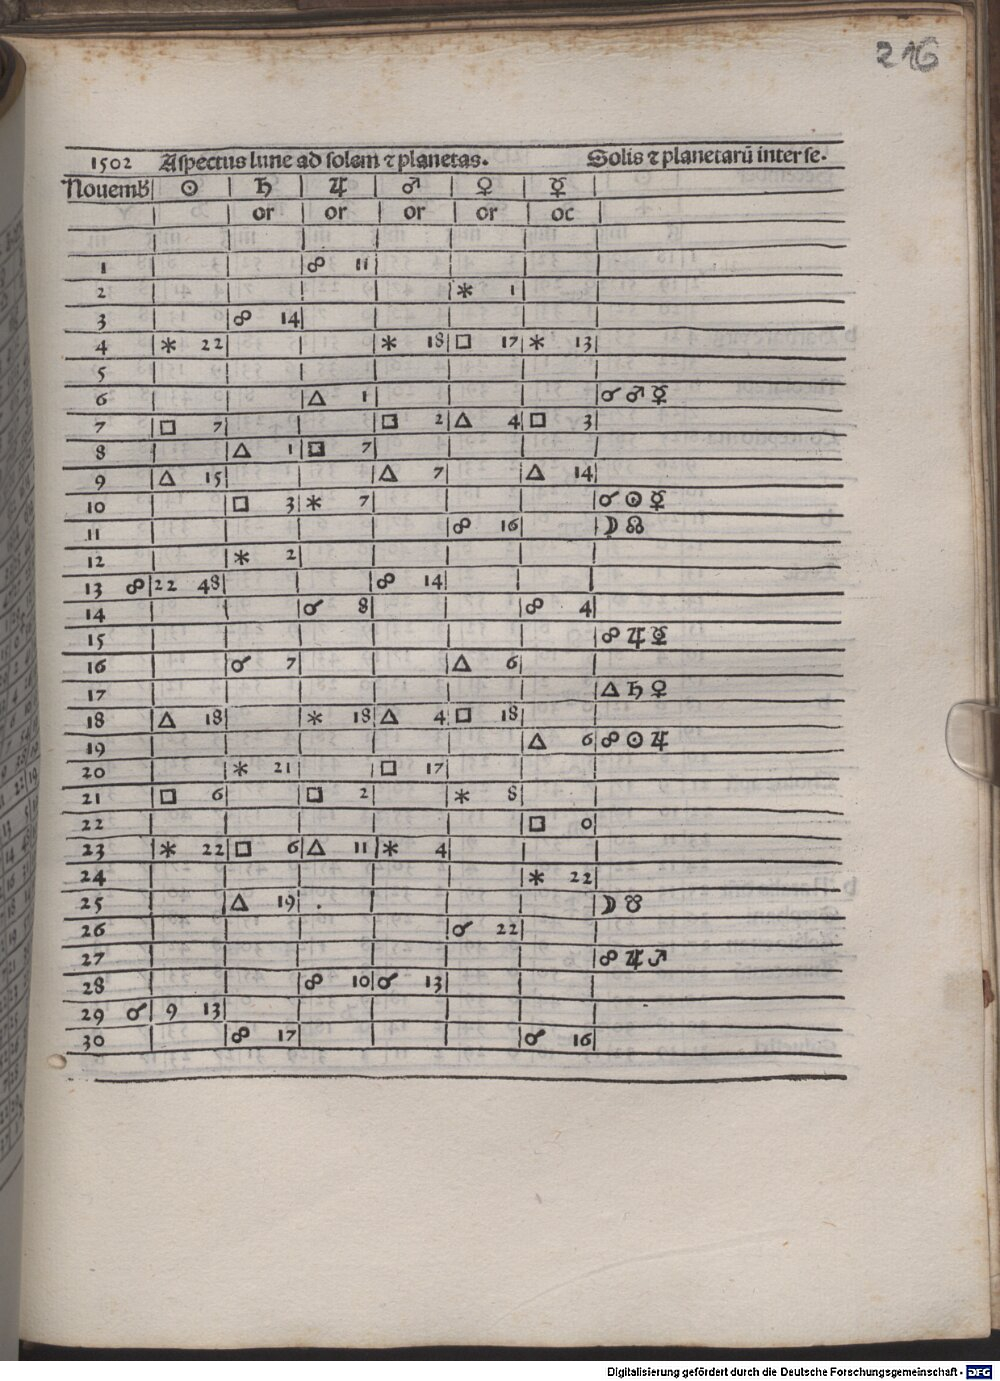 216
1502 Aspectus lune ad solem ⁊ planetas. Solis ⁊ planetarū inter se.
Nouemb ☉ ♄ ♃ ♂ ♀ ☿
or or or or oc
1 ☍ 11
2 ⚹ 1
3 ☍ 14
4 ⚹ 22 ⚹ 18 □ 17 ⚹ 13
5
6 △ 1 ☌ ♂ ☿
7 □ 7 □ 2 △ 4 □ 3
8 △ 1 □ 7
9 △ 15 △ 7 △ 14
10 □ 3 ⚹ 7 ☌ ☉ ☿
11 ☍ 16 ☽ ☊
12 ⚹ 2
13 ☍ 22 48 ☍ 14
14 ☌ 8 ☍ 4
15 ☍ ♃ ☿
16 ☌ 7 △ 6
17 △ ♄ ♀
18 △ 18 ⚹ 18 △ 4 □ 18
19 △ 6 ☍ ☉ ♃
20 ⚹ 21 □ 17
21 □ 6 □ 2 ⚹ 8
22 □ 0
23 ⚹ 22 □ 6 △ 11 ⚹ 4
24 ⚹ 22
25 △ 19 ☽ ☋
26 ☌ 22
27 ☍ ♃ ♂
28 ☍ 10 ☌ 13
29 ☌ 9 13
30 ☍ 17 ☌ 16
Digitalisierung gefördert durch die Deutsche Forschungsgemeinschaft - DFG